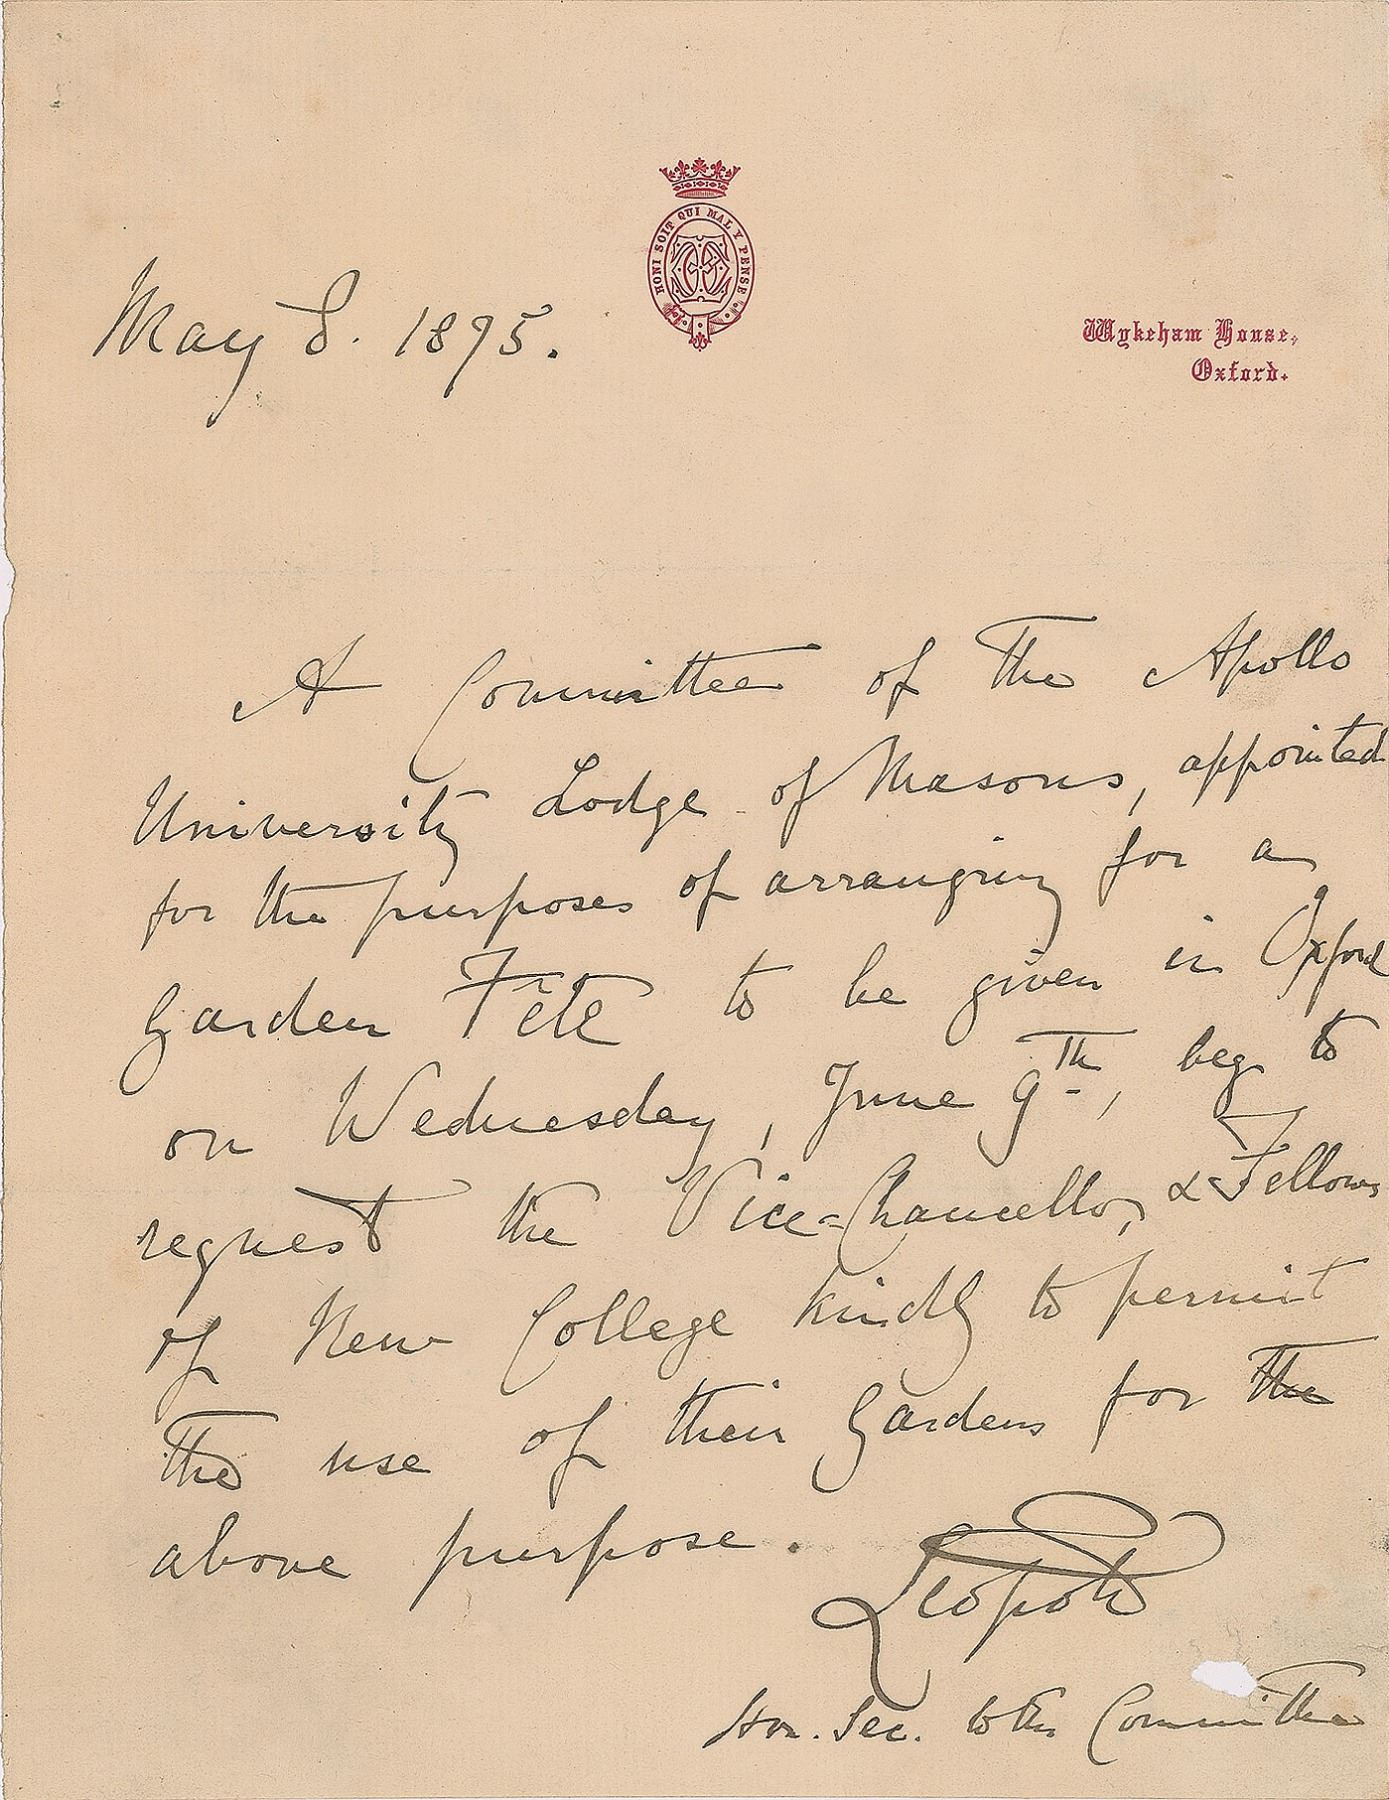 HONI SOIT QUI MAL Y PENSE
May 8. 1875.
Wykeham House,
Oxford.
A Committee of the Apollo
University Lodge of Masons, appointed
for the purposes of arranging for a
Garden Fête to be given in Oxford
on Wednesday, June 9th, beg to
request the Vice-Chancellor, & Fellows
of New College kindly to permit
the use of their Gardens for the
above purpose.
Leopold
Hon. Sec. to the Committee